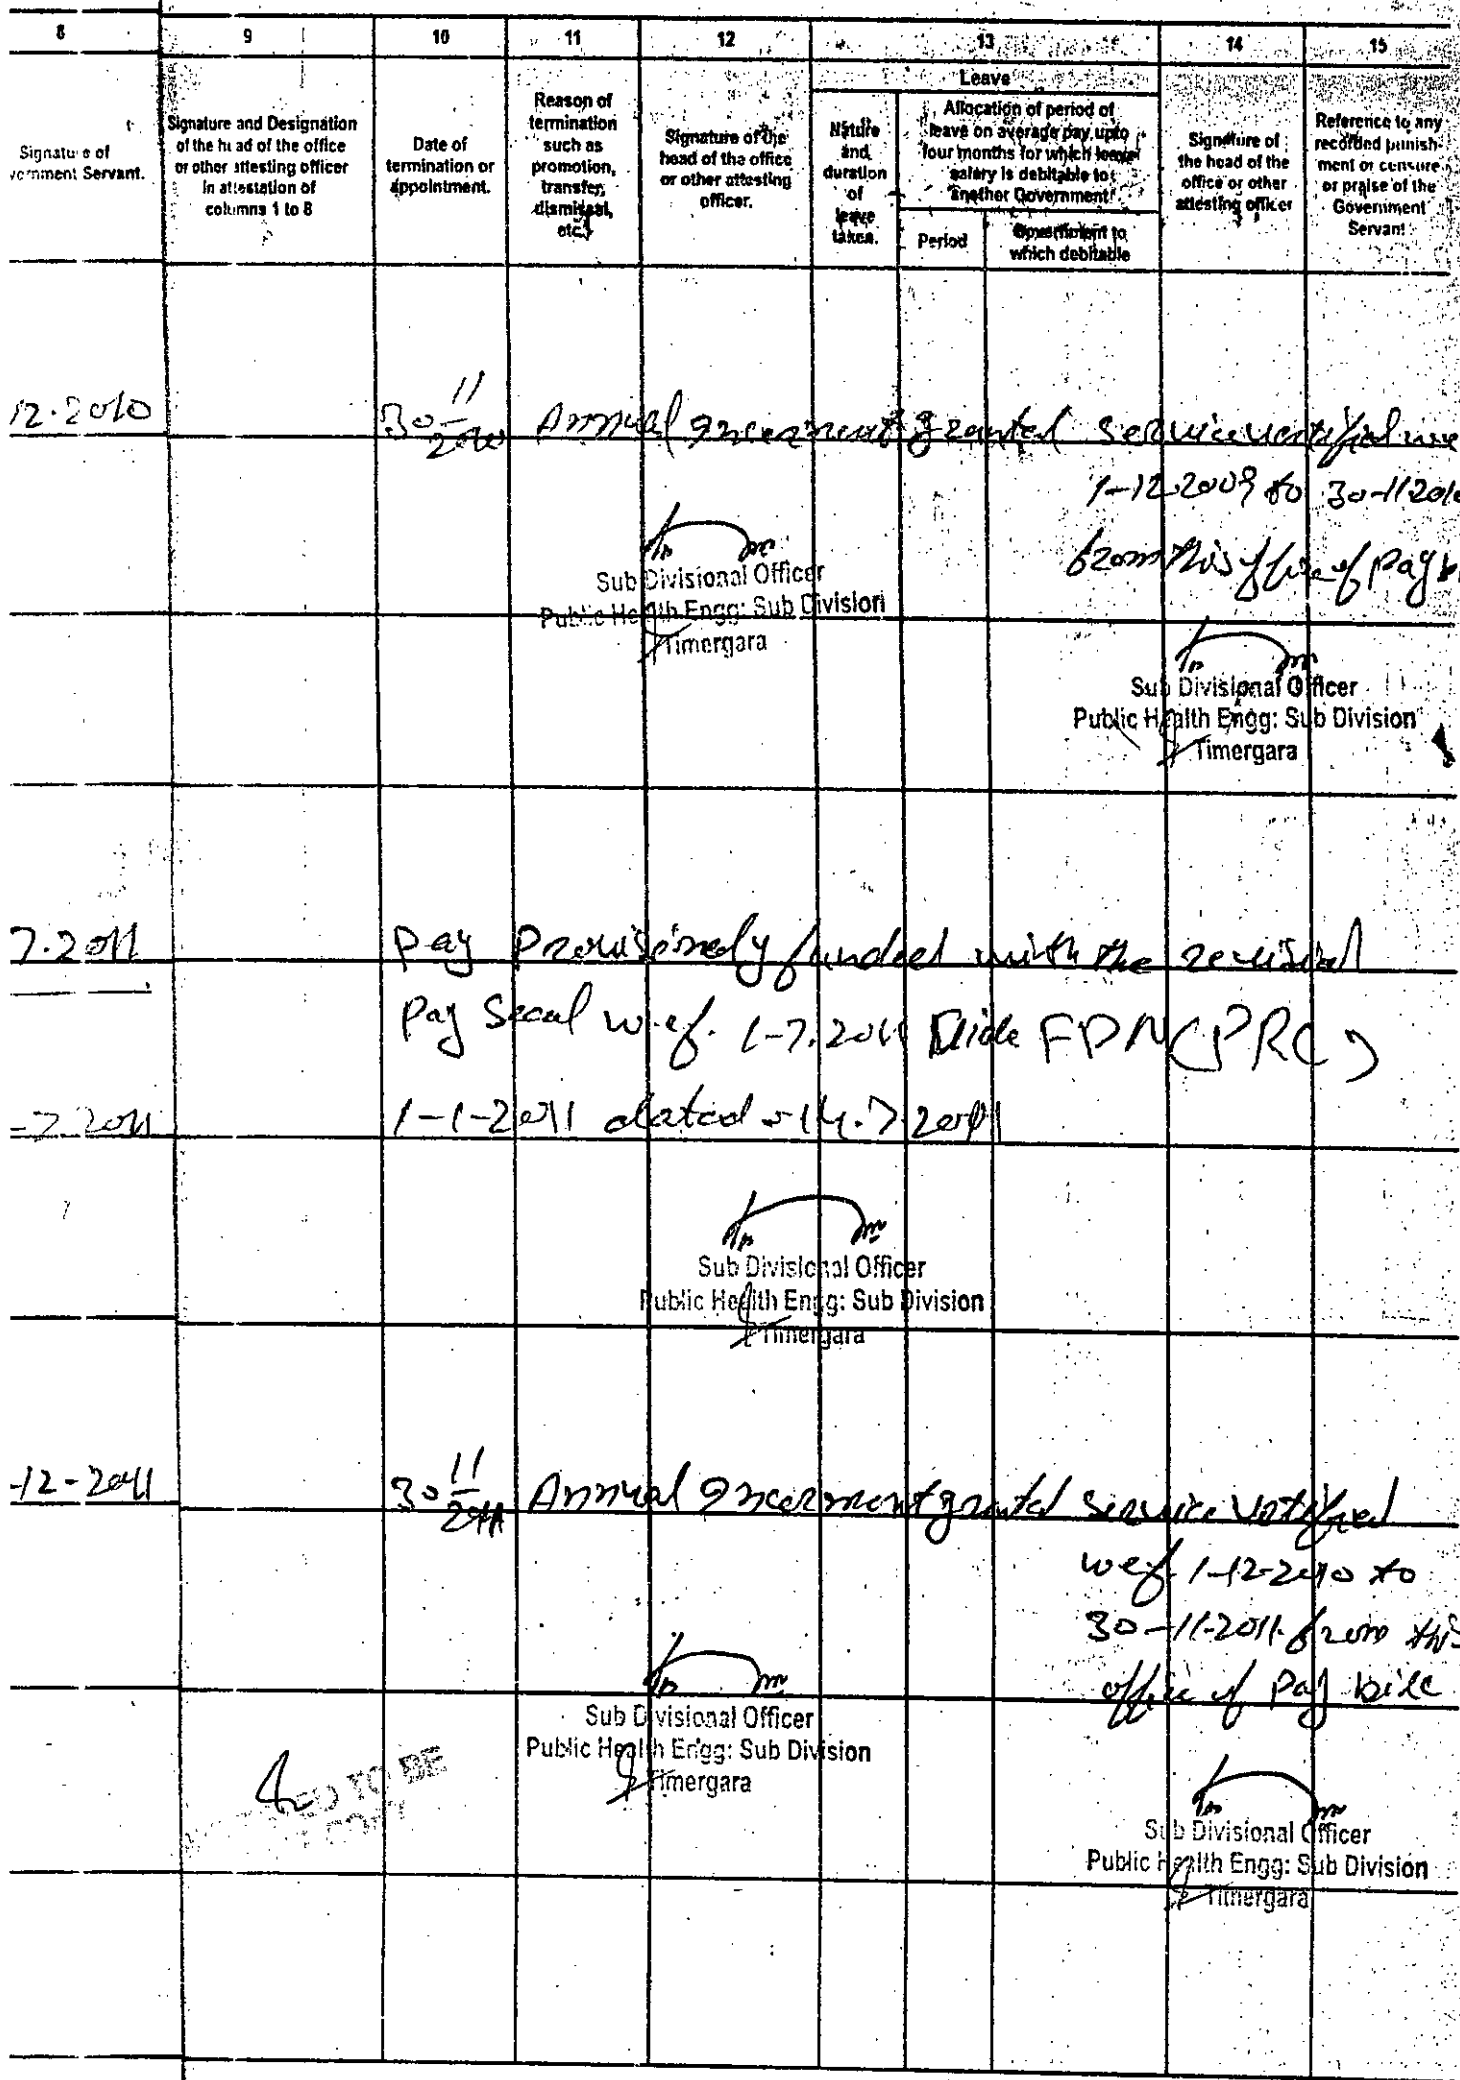 8 9 10 11 12 13 14 15
Signature of
vernment Servant.
Signature and Designation
of the head of the office
or other attesting officer
in attestation of
columns 1 to 8
Date of
termination or
appointment.
Reason of
termination
such as
promotion,
transfer,
dismissal,
etc.
Signature of the
head of the office
or other attesting
officer.
Leave
Nature
and
duration
of
leave
taken.
Allocation of period of
leave on average pay upto
four months for which leave
salary is debitable to
another Government
Period
Government to
which debitable
Signature of
the head of the
office or other
attesting officer
Reference to any
recorded punish-
ment or censure
or praise of the
Government
Servant
12.2010 30 11/2010 Annual increment granted service verified
1-12-2009 to 30-11-2010
from this office of pay
Sub Divisional Officer
Public Health Engg: Sub Division
Timergara
Sub Divisional Officer
Public Health Engg: Sub Division
Timergara
7.2011 Pay Provisionely with the
Pay Sceal w.ef. 1-7.2011 FDN(PRC)
-7.2011 1-1-2011 dated 14.7.2011
Sub Divisional Officer
Public Health Engg: Sub Division
Timergara
-12-2011 30 11/2011 Annual increment granted service verified
wef. 1-12-2010 to
30-11-2011 from this
office of Pay bill
Sub Divisional Officer
Public Health Engg: Sub Division
Timergara
TO BE
COPY
Sub Divisional Officer
Public Health Engg: Sub Division
Timergara